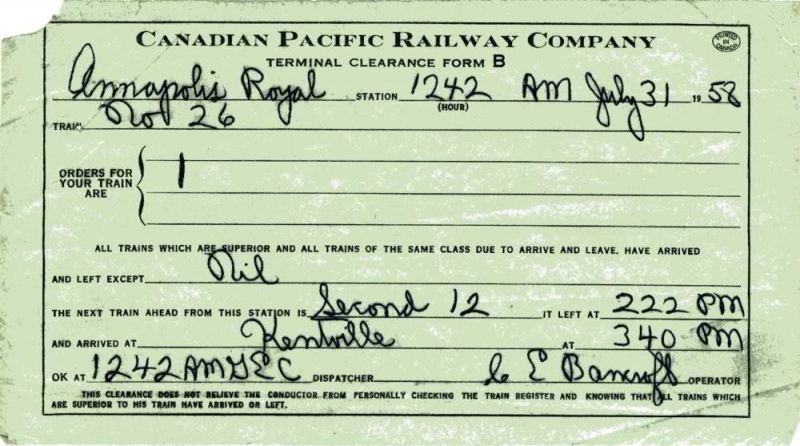 CANADIAN PACIFIC RAILWAY COMPANY
PRINTED IN CANADA
TERMINAL CLEARANCE FORM B
Annapolis Royal STATION 1242 AM July 31 1958
(HOUR)
TRAIN No 26
ORDERS FOR YOUR TRAIN ARE 1
ALL TRAINS WHICH ARE SUPERIOR AND ALL TRAINS OF THE SAME CLASS DUE TO ARRIVE AND LEAVE, HAVE ARRIVED
AND LEFT EXCEPT Nil
THE NEXT TRAIN AHEAD FROM THIS STATION IS Second 12 IT LEFT AT 222 PM
AND ARRIVED AT Kentville AT 340 PM
OK AT 1242 AM GEC DISPATCHER C E Bancroft OPERATOR
THIS CLEARANCE DOES NOT RELIEVE THE CONDUCTOR FROM PERSONALLY CHECKING THE TRAIN REGISTER AND KNOWING THAT ALL TRAINS WHICH
ARE SUPERIOR TO HIS TRAIN HAVE ARRIVED OR LEFT.